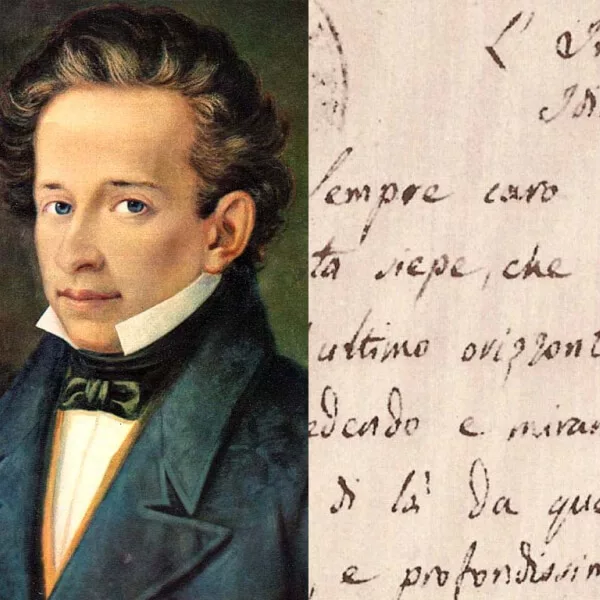 L'In
Idi
Sempre caro
ta siepe, che
ultimo orizzont
edendo e miran
di là da que
, e profondissim